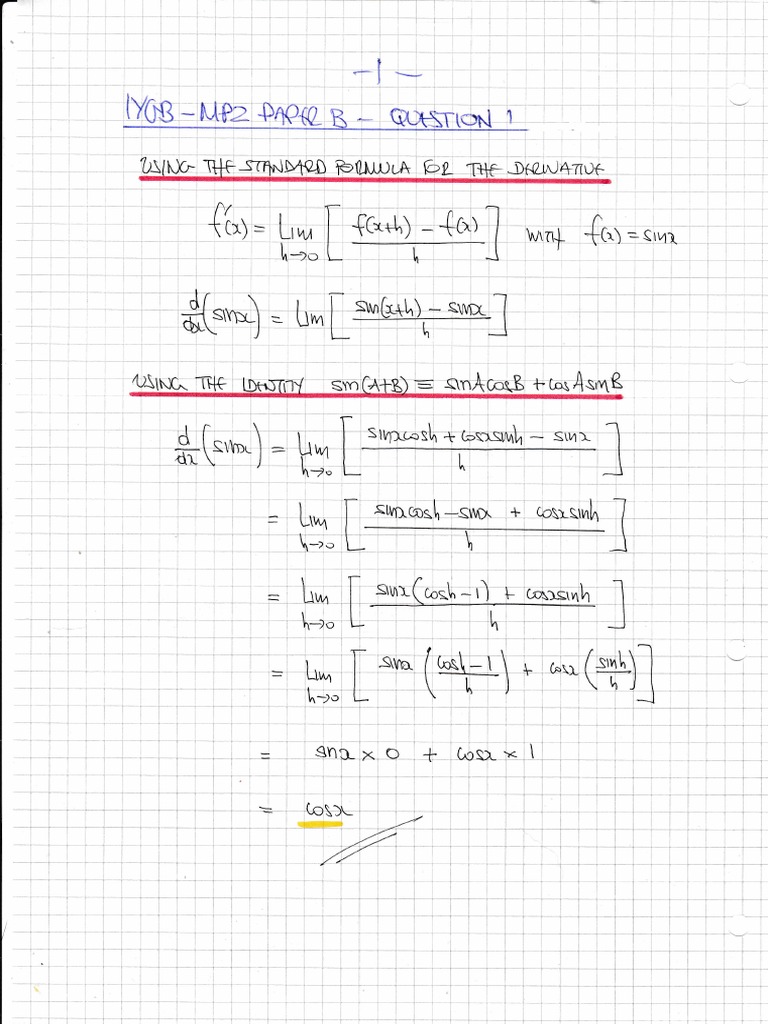 -1-
IYGB - MP2 PAPER B - QUESTION 1
USING THE STANDARD FORMULA FOR THE DERIVATIVE
f'(x) = Lim h→0 [ (f(x+h) - f(x)) / h ] WITH f(x) = sinx
d/dx (sinx) = Lim [ (sin(x+h) - sinx) / h ]
USING THE IDENTITY sin(A+B) ≡ sinAcosB + cosAsinB
d/dx (sinx) = Lim h→0 [ (sinxcosh + cosxsinh - sinx) / h ]
= Lim h→0 [ (sinxcosh - sinx + cosxsinh) / h ]
= Lim h→0 [ (sinx(cosh-1) + cosxsinh) / h ]
= Lim h→0 [ sinx ((cosh-1) / h) + cosx (sinh / h) ]
= sinx × 0 + cosx × 1
= cosx